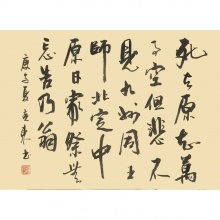 死去原知萬
事空但悲不
見九州同王
師北定中
原日家祭無
忘告乃翁
夏
书